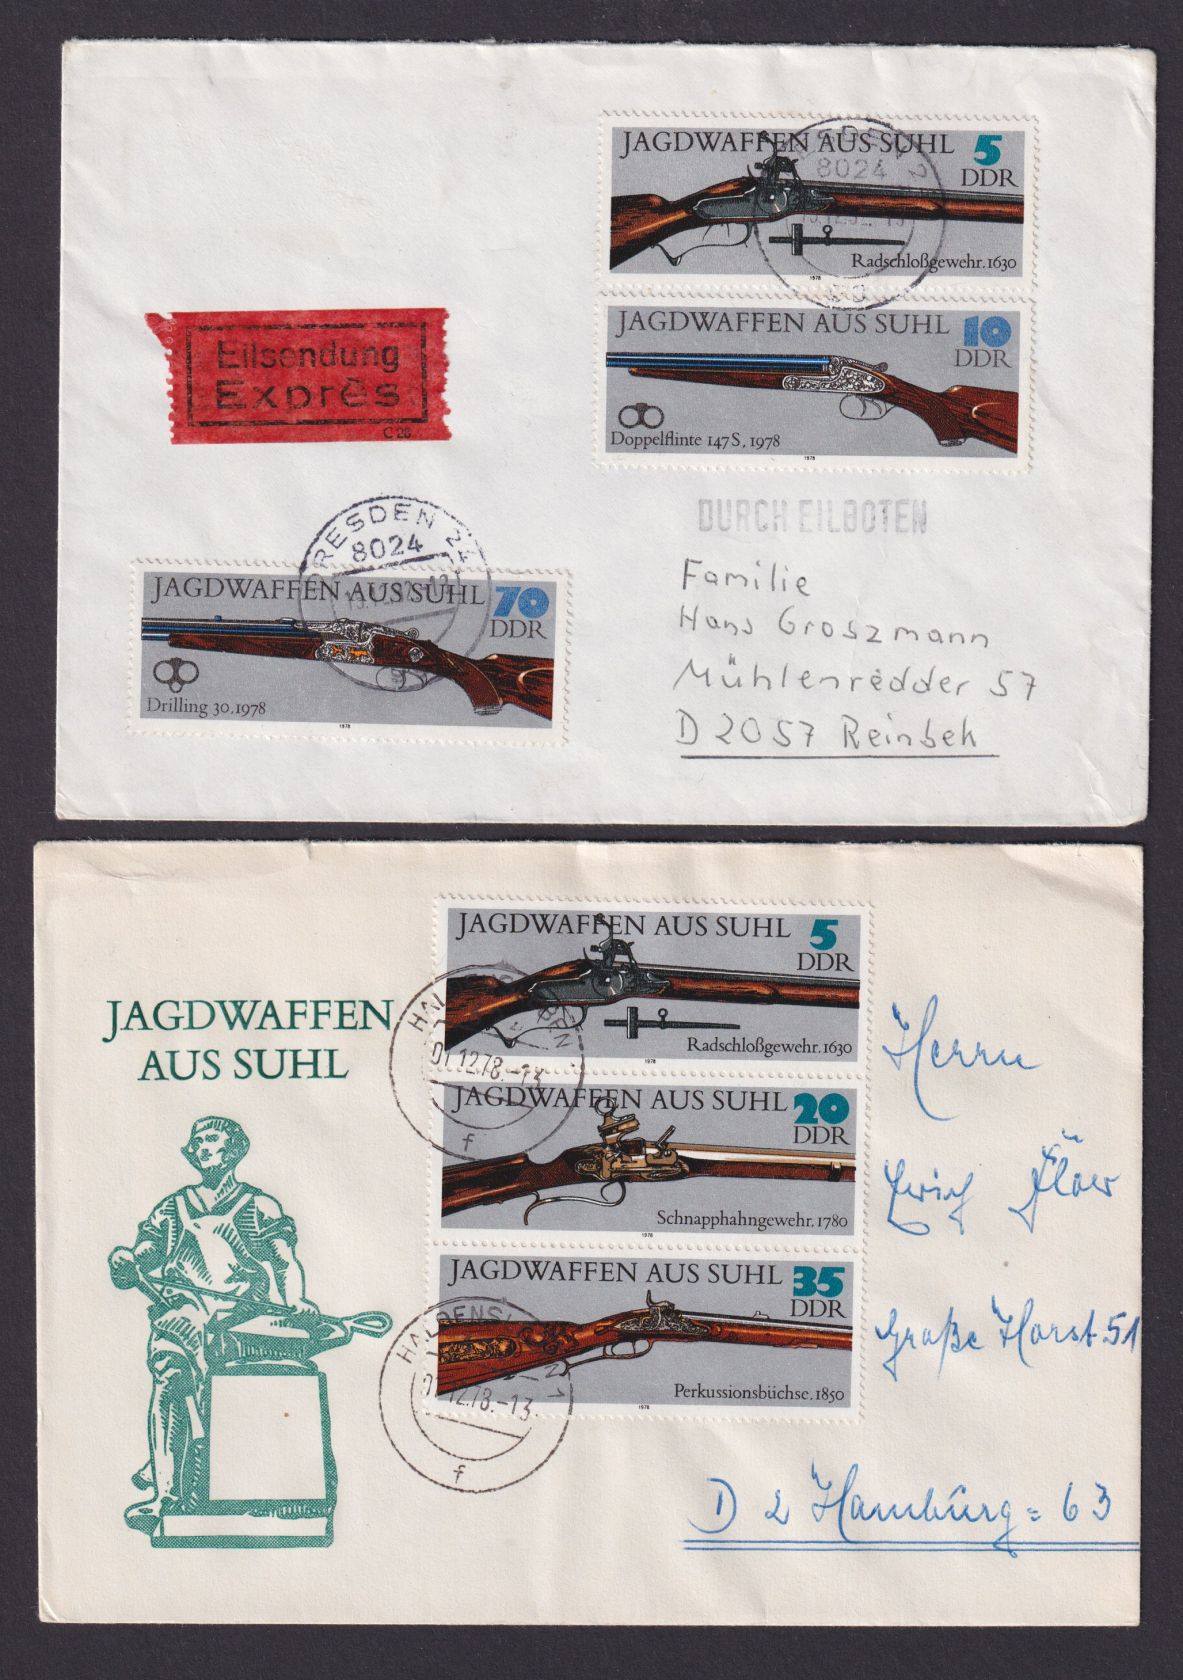 JAGDWAFFEN AUS SUHL 5
DDR
8024
Radschloßgewehr.1630
1978
JAGDWAFFEN AUS SUHL 10
DDR
Doppelflinte 147S, 1978
1978
Eilsendung
Exprès
C 28
DURCH EILBOTEN
DRESDEN 24
8024
JAGDWAFFEN AUS SUHL 70
DDR
Drilling 30.1978
1978
Familie
Hans Groszmann
Mühlenredder 57
D 2057 Reinbek
JAGDWAFFEN
AUS SUHL
JAGDWAFFEN AUS SUHL 5
DDR
Radschloßgewehr.1630
1978
01.12.78.-13
f
JAGDWAFFEN AUS SUHL 20
DDR
Schnapphahngewehr.1780
1978
JAGDWAFFEN AUS SUHL 35
DDR
Perkussionsbüchse.1850
1978
01.12.78.-13
f
Herrn
Große Horst 51
D 2 Hamburg = 63